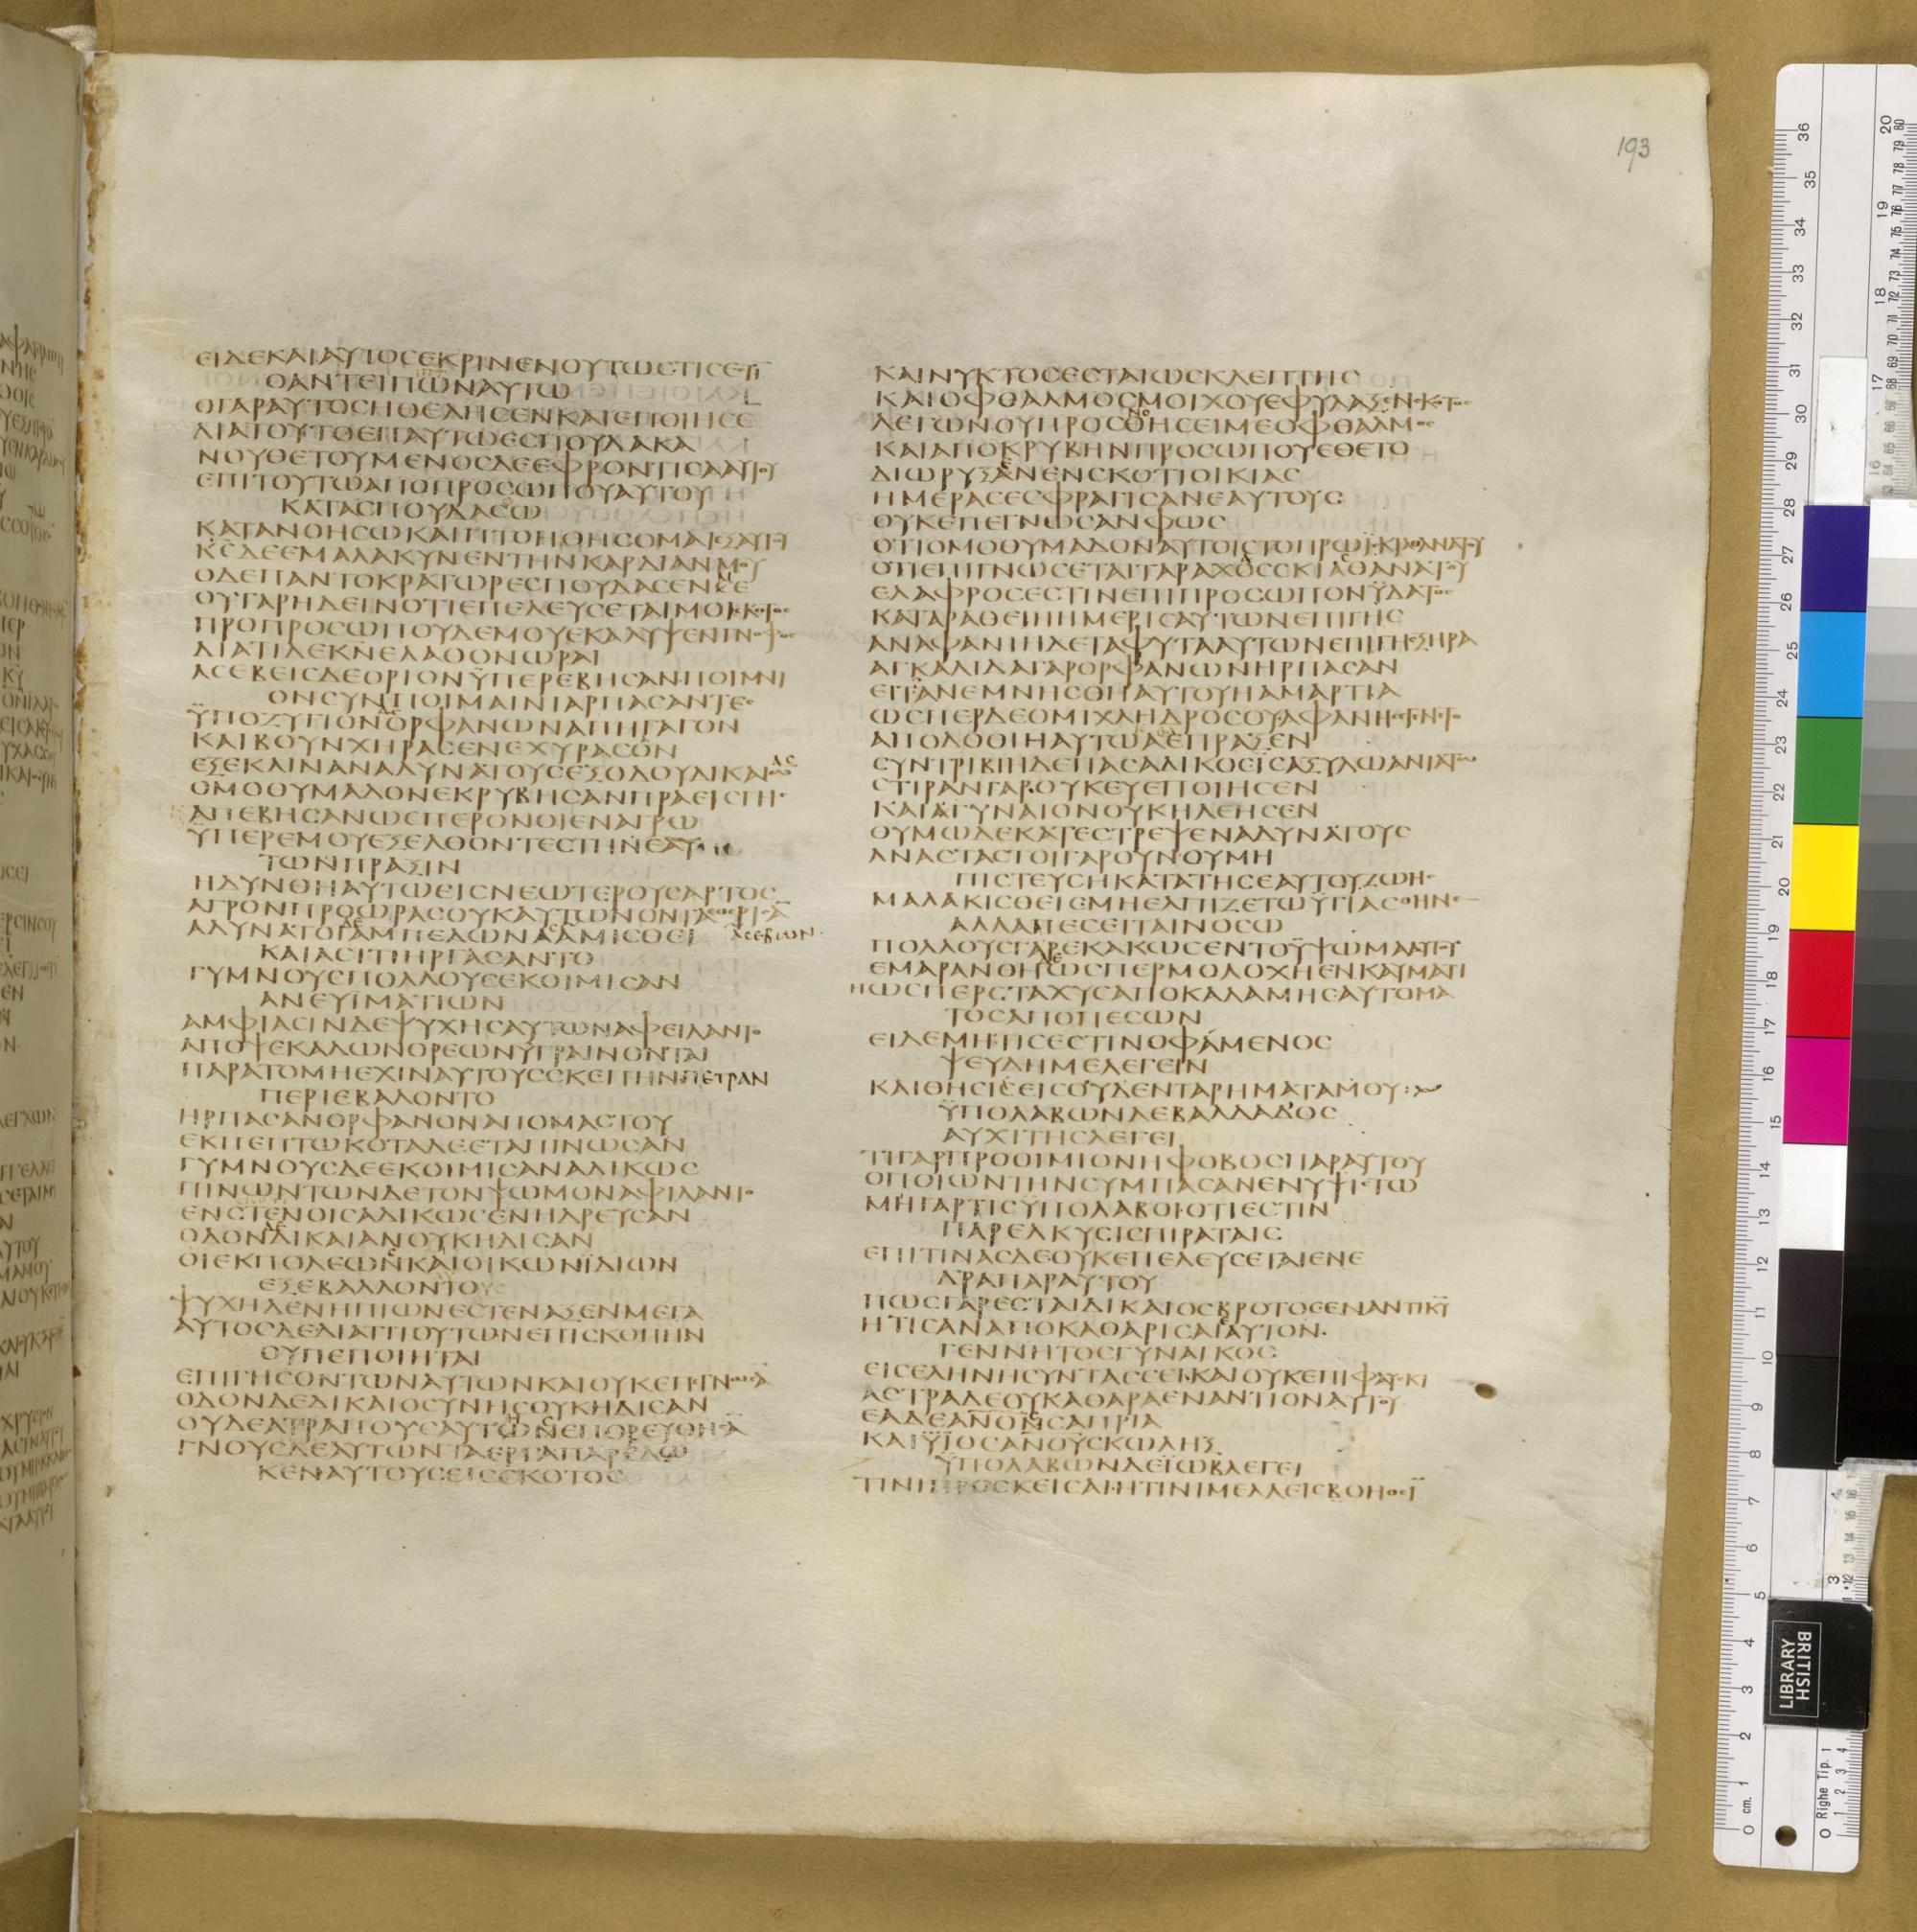 193
ΕΙΔΕΚΑΙΑΥΤΟΣΕΚΡΙΝΕΝΟΥΤΩΣΤΙΣΕΣΤΙ
ΟΑΝΤΕΙΠΩΝΑΥΤΩ
ΟΓΑΡΑΥΤΟΣΗΘΕΛΗΣΕΝΚΑΙΕΠΟΙΗΣΕ
ΔΙΑΤΟΥΤΟΕΠΑΥΤΩΕΣΠΟΥΔΑΚΑ
ΝΟΥΘΕΤΟΥΜΕΝΟΣΔΕΕΦΡΟΝΤΙΣΑΑΥΤΟΥ
ΕΠΙΤΟΥΤΩΑΠΟΠΡΟΣΩΠΟΥΑΥΤΟΥ
ΚΑΤΑΣΠΟΥΔΑΣΩ
ΚΑΤΑΝΟΗΣΩΚΑΙΠΤΟΗΘΗΣΟΜΑΙΕΞΑΥΤΟΥ
ΚΣΔΕΕΜΑΛΑΚΥΝΕΝΤΗΝΚΑΡΔΙΑΝΜΟΥ
ΟΔΕΠΑΝΤΟΚΡΑΤΩΡΕΣΠΟΥΔΑΣΕΝΜΕ
ΟΥΓΑΡΗΔΕΙΝΟΤΙΕΠΕΛΕΥΣΕΤΑΙΜΟΙΣΚΟΤΟΣ
ΠΡΟΠΡΟΣΩΠΟΥΔΕΜΟΥΕΚΑΛΥΨΕΝΓΝΟΦΟΣ
ΔΙΑΤΙΔΕΚΝΕΛΑΘΟΝΩΡΑΙ
ΑΣΕΒΕΙΣΔΕΟΡΙΟΝΫΠΕΡΕΒΗΣΑΝΠΟΙΜΝΙ
ΟΝΣΥΝΠΟΙΜΑΙΝΙΑΡΠΑΣΑΝΤΕΣ
ΫΠΟΖΥΓΙΟΝΟΡΦΑΝΩΝΑΠΗΓΑΓΟΝ
ΚΑΙΒΟΥΝΧΗΡΑΣΕΝΕΧΥΡΑΣΟΝ
ΕΞΕΚΛΙΝΑΝΑΔΥΝΑΤΟΥΣΕΞΟΔΟΥΔΙΚΑΙΑΣ
ΟΜΟΘΥΜΑΔΟΝΕΚΡΥΒΗΣΑΝΠΡΑΕΙΣΓΗΣ
ΑΠΕΒΗΣΑΝΩΣΠΕΡΟΝΟΙΕΝΑΓΡΩ
ΥΠΕΡΕΜΟΥΕΞΕΛΘΟΝΤΕΣΤΗΝΕΑΥ
ΤΩΝΠΡΑΞΙΝ
ΗΔΥΝΘΗΑΥΤΩΕΙΣΝΕΩΤΕΡΟΥΣΑΡΤΟΣ
ΑΓΡΟΝΠΡΟΩΡΑΣΟΥΚΑΥΤΩΝΟΝΤΑ
ΑΔΥΝΑΤΟΙΑΜΠΕΛΩΝΑΣΑΜΙΣΘΕΙ ΑΣΕΒΩΝ
ΚΑΙΑΣΙΤΙΗΡΓΑΣΑΝΤΟ
ΓΥΜΝΟΥΣΠΟΛΛΟΥΣΕΚΟΙΜΙΣΑΝ
ΑΝΕΥΪΜΑΤΙΩΝ
ΑΜΦΙΑΣΙΝΔΕΨΥΧΗΣΑΥΤΩΝΑΦΕΙΛΑΝΤΟ
ΑΠΟΨΕΚΑΔΩΝΟΡΕΩΝΥΓΡΑΙΝΟΝΤΑΙ
ΠΑΡΑΤΟΜΗΕΧΙΝΑΥΤΟΥΣΣΚΕΠΗΝΠΕΤΡΑΝ
ΠΕΡΙΕΒΑΛΟΝΤΟ
ΗΡΠΑΣΑΝΟΡΦΑΝΟΝΑΠΟΜΑΣΤΟΥ
ΕΚΠΕΠΤΩΚΟΤΑΔΕΕΤΑΠΙΝΩΣΑΝ
ΓΥΜΝΟΥΣΔΕΕΚΟΙΜΙΣΑΝΑΔΙΚΩΣ
ΠΙΝΩΝΤΩΝΔΕΤΟΝΨΩΜΟΝΑΦΙΛΑΝΤΟ
ΕΝΣΤΕΝΟΙΣΑΔΙΚΩΣΕΝΗΔΡΕΥΣΑΝ
ΟΔΟΝΔΙΚΑΙΑΝΟΥΚΗΔΙΣΑΝ
ΟΙΕΚΠΟΛΕΩΝΚΑΙΟΙΚΩΝΪΔΙΩΝ
ΕΞΕΒΑΛΛΟΝΤΟ
ΨΥΧΗΔΕΝΗΠΙΩΝΕΣΤΕΝΑΞΕΝΜΕΓΑ
ΑΥΤΟΣΔΕΔΙΑΤΙΤΟΥΤΩΝΕΠΙΣΚΟΠΗΝ
ΟΥΠΕΠΟΙΗΤΑΙ
ΕΠΙΓΗΣΟΝΤΩΝΑΥΤΩΝΚΑΙΟΥΚΕΠΕΓΝΩΣΑ
ΟΔΟΝΔΕΔΙΚΑΙΟΣΥΝΗΣΟΥΚΗΔΙΣΑΝ
ΟΥΔΕΑΤΡΑΠΟΥΣΑΥΤΩΝΕΠΟΡΕΥΘΗΣΑ
ΓΝΟΥΣΔΕΑΥΤΩΝΤΑΕΡΓΑΠΑΡΕΔΩ
ΚΕΝΑΥΤΟΥΣΕΙΣΣΚΟΤΟΣ
ΚΑΙΝΥΚΤΟΣΕΣΤΑΙΩΣΚΛΕΠΤΗΣ
ΚΑΙΟΦΘΑΛΜΟΣΜΟΙΧΟΥΕΦΥΛΑΞΕΝΣΚΟΤΟΣ
ΛΕΓΩΝΟΥΠΡΟΣΘΗΣΕΙΜΕΟΦΘΑΛΜΟΣ
ΚΑΙΑΠΟΚΡΥΒΗΝΠΡΟΣΩΠΟΥΕΘΕΤΟ
ΔΙΩΡΥΞΑΝΕΝΣΚΟΤΙΟΙΚΙΑΣ
ΗΜΕΡΑΣΕΣΦΡΑΓΙΣΑΝΕΑΥΤΟΥΣ
ΟΥΚΕΠΕΓΝΩΣΑΝΦΩΣ
ΟΤΙΟΜΟΘΥΜΑΔΟΝΑΥΤΟΙΣΤΟΠΡΩΪΣΚΙΑΘΑΝΑΤΟΥ
ΟΤΙΕΠΙΓΝΩΣΕΤΑΙΤΑΡΑΧΟΣΣΚΙΑΘΑΝΑΤΟΥ
ΕΛΑΦΡΟΣΕΣΤΙΝΕΠΙΠΡΟΣΩΠΟΝΫΔΑΤΟΣ
ΚΑΤΑΡΑΘΕΙΗΗΜΕΡΙΣΑΥΤΩΝΕΠΙΓΗΣ
ΑΝΑΦΑΝΙΗΔΕΤΑΦΥΤΑΑΥΤΩΝΕΠΙΓΗΣΞΗΡΑ
ΑΓΚΑΛΙΔΑΓΑΡΟΡΦΑΝΩΝΗΡΠΑΣΑΝ
ΕΙΤΑΝΕΜΝΗΣΘΗΑΥΤΟΥΗΑΜΑΡΤΙΑ
ΩΣΠΕΡΔΕΟΜΙΧΛΗΔΡΟΣΟΥΑΦΑΝΗΣΕΓΕΝΕΤΟ
ΑΠΟΔΟΘΙΗΑΥΤΩΑΕΠΡΑΞΕΝ
ΣΥΝΤΡΙΒΙΗΔΕΠΑΣΑΔΙΚΟΣΙΣΑΞΥΛΩΑΝΙΑΤΩ
ΣΤΙΡΑΝΓΑΡΟΥΚΕΥΕΠΟΙΗΣΕΝ
ΚΑΙΑΓΥΝΑΙΟΝΟΥΚΗΛΕΗΣΕΝ
ΟΥΜΩΔΕΚΑΤΕΣΤΡΕΨΕΝΑΔΥΝΑΤΟΥΣ
ΑΝΑΣΤΑΣΤΟΙΓΑΡΟΥΝΟΥΜΗ
ΠΙΣΤΕΥΣΗΚΑΤΑΤΗΣΕΑΥΤΟΥΖΩΗΣ
ΜΑΛΑΚΙΣΘΕΙΣΜΗΕΛΠΙΖΕΤΩΫΓΙΑΣΘΗΝΕ
ΑΛΛΑΠΕΣΕΙΤΑΙΝΟΣΩ
ΠΟΛΛΟΥΣΓΑΡΕΚΑΚΩΣΕΝΤΟΫΨΩΜΑΑΥΤΟΥ
ΕΜΑΡΑΝΘΗΩΣΠΕΡΜΟΛΟΧΗΕΝΚΑΥΜΑΤΙ
ΗΩΣΠΕΡΣΤΑΧΥΣΑΠΟΚΑΛΑΜΗΣΑΥΤΟΜΑ
ΤΟΣΑΠΟΠΕΣΩΝ
ΕΙΔΕΜΗΤΙΣΕΣΤΙΝΟΦΑΜΕΝΟΣ
ΨΕΥΔΗΜΕΛΕΓΕΙΝ
ΚΑΙΘΗΣΙΕΙΣΟΥΔΕΝΤΑΡΗΜΑΤΑΜΟΥ:
ΫΠΟΛΑΒΩΝΔΕΒΑΛΔΑΔΟΣ
ΑΥΧΙΤΗΣΛΕΓΕΙ
ΤΙΓΑΡΠΡΟΟΙΜΙΟΝΗΦΟΒΟΣΠΑΡΑΥΤΟΥ
ΟΠΟΙΩΝΤΗΝΣΥΜΠΑΣΑΝΕΝΥΨΙΣΤΩ
ΜΗΓΑΡΤΙΣΫΠΟΛΑΒΟΙΟΤΙΕΣΤΙΝ
ΠΑΡΕΛΚΥΣΙΣΠΙΡΑΤΑΙΣ
ΕΠΙΤΙΝΑΣΔΕΟΥΚΕΠΕΛΕΥΣΕΤΑΙΕΝΕ
ΔΡΑΠΑΡΑΥΤΟΥ
ΠΩΣΓΑΡΕΣΤΑΙΔΙΚΑΙΟΣΒΡΟΤΟΣΕΝΑΝΤΙΚΥ
ΗΤΙΣΑΝΑΠΟΚΑΘΑΡΙΣΑΙΑΥΤΟΝ
ΓΕΝΝΗΤΟΣΓΥΝΑΙΚΟΣ
ΕΙΣΕΛΗΝΗΣΥΝΤΑΣΣΕΙΚΑΙΟΥΚΕΠΙΦΑΥΣΚΙ
ΑΣΤΡΑΔΕΟΥΚΑΘΑΡΑΕΝΑΝΤΙΟΝΑΥΤΟΥ
ΕΑΔΕΑΝΟΣΣΑΠΡΙΑ
ΚΑΙΫΙΟΣΑΝΟΥΣΚΩΛΗΞ
ΫΠΟΛΑΒΩΝΔΕΪΩΒΛΕΓΕΙ
ΤΙΝΙΠΡΟΣΚΕΙΣΑΙΗΤΙΝΙΜΕΛΛΕΙΣΒΟΗΘΕΙ
BRITISH
LIBRARY
0 cm. 1 2 3 4 5 6 7 8 9 10 11 12 13 14 15 16 17 18 19 20 21 22 23 24 25 26 27 28 29 30 31 32 33 34 35 36
0 Righe Tip. 1